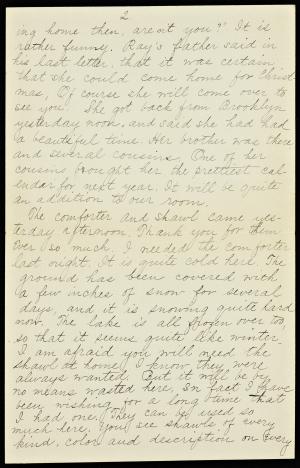 2
ing home then, aren't you?" It is
rather funny. Ray's father said in
his last letter, that it was certain
that she could come home for Christ
mas, Of course she will come over to
see you. She got back from Brooklyn
yesterday noon, and said she had had
a beautiful time. Her brother was there
and several cousins, One of her
cousins brought her the prettiest cal-
endar for next year. It will be quite
an addition to our room.
The comforter and shawl came yes-
terday afternoon. Thank you for them
ever so much. I needed the comforter
last night. It is quite cold here. The
ground has been covered with
a few inches of snow for several
days, and it is snowing quite hard
now. The lake is all frozen over too,
so that it seems quite like winter.
I am afraid you will need the
shawl at home, I know they were
always wanted, but it will be by
no means wasted here, In fact I have
been wishing for a long time that
I had one. They can be used so
much here. You see shawls of every
kind, color and description on every